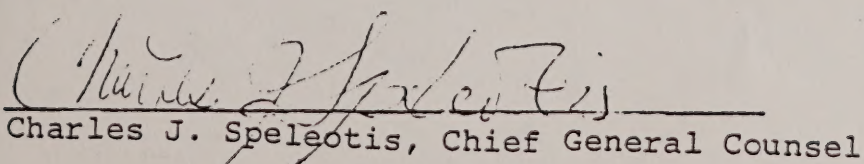 Charles J Speleotis
Charles J. Speleotis, Chief General Counsel